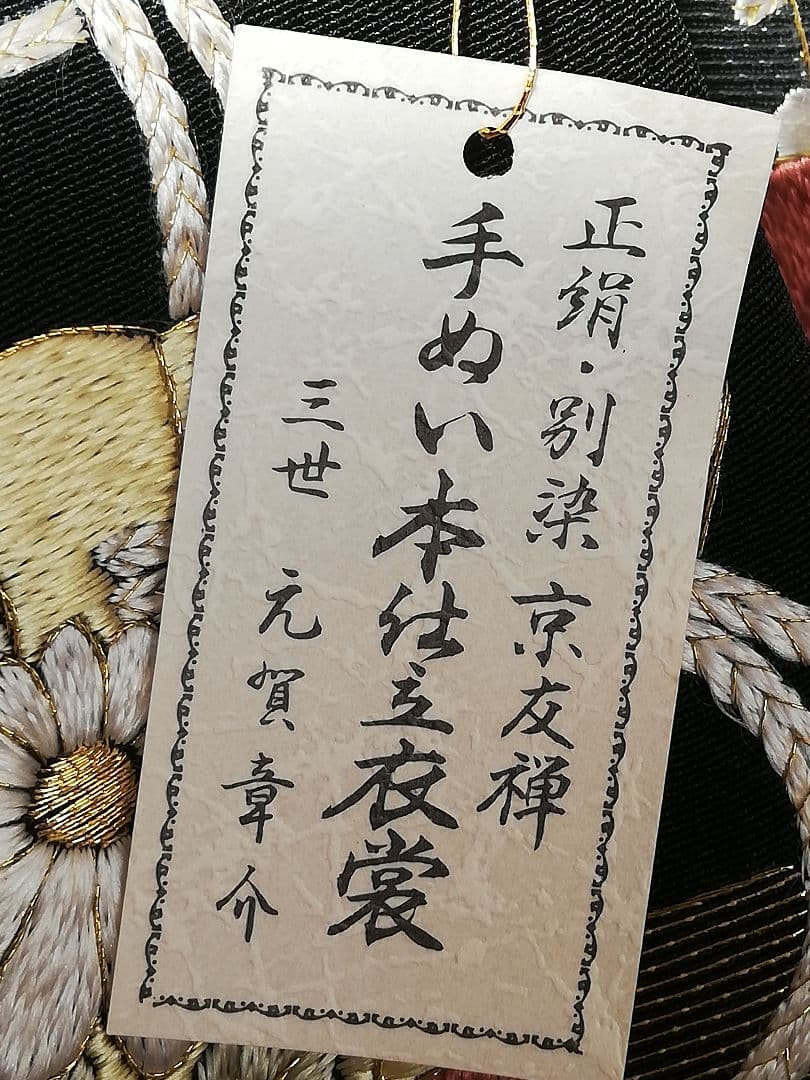 正絹・別染 京友禅
手ぬい本仕立衣裳
三世 元賀章介